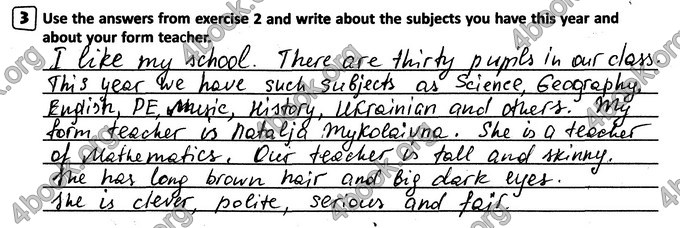 3 Use the answers from exercise 2 and write about the subjects you have this year and
about your form teacher.
I like my school. There are thirty pupils in our class.
This year we have such subjects as Science, Geography,
English, PE, Music, History, Ukrainian and others. My
form teacher is Natalja Mykolaivna. She is a teacher
of Mathematics. Our teacher is tall and skinny.
She has long brown hair and big dark eyes.
She is clever, polite, serious and fair.
4book.org